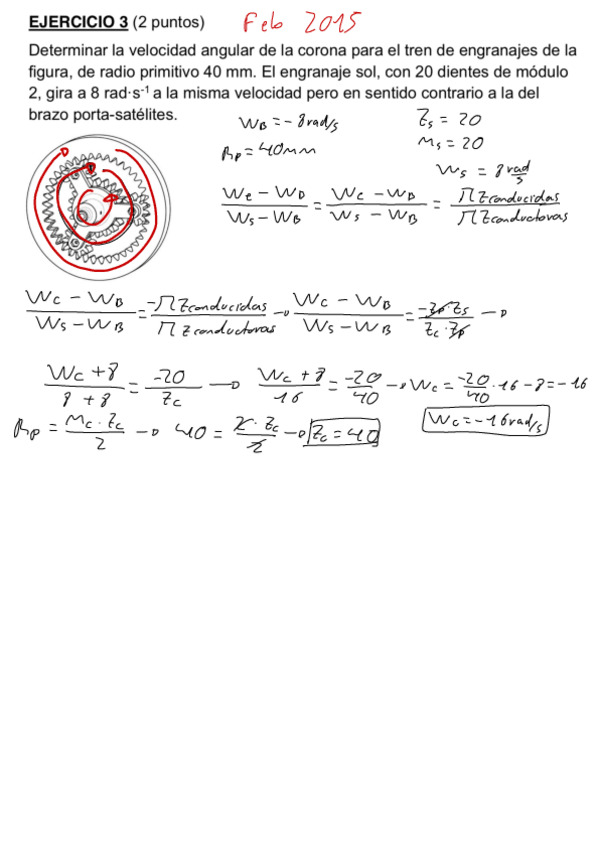 EJERCICIO 3 (2 puntos) Feb 2015
Determinar la velocidad angular de la corona para el tren de engranajes de la
figura, de radio primitivo 40 mm. El engranaje sol, con 20 dientes de módulo
2, gira a 8 rad·s-1 a la misma velocidad pero en sentido contrario a la del
brazo porta-satélites.
WB = - 8 rad/s Zs = 20
Rp = 40mm Ms = 20
Ws = 8 rad/s
We - WD / Ws - WB = Wc - WB / Ws - WB = ∏ Zconducidas / ∏ Zconductoras
Wc - WB / Ws - WB = -∏ Zconducidas / ∏ Zconductoras → Wc - WB / Ws - WB = -Zp·Zs / Zc·Zp →
Wc + 8 / 8 + 8 = -20 / Zc → Wc + 8 / 16 = -20 / 40 → Wc = -20 / 40 · 16 - 8 = - 16
Rp = Mc · Zc / 2 → 40 = 2 · Zc / 2 → Zc = 40 Wc = - 16 rad/s